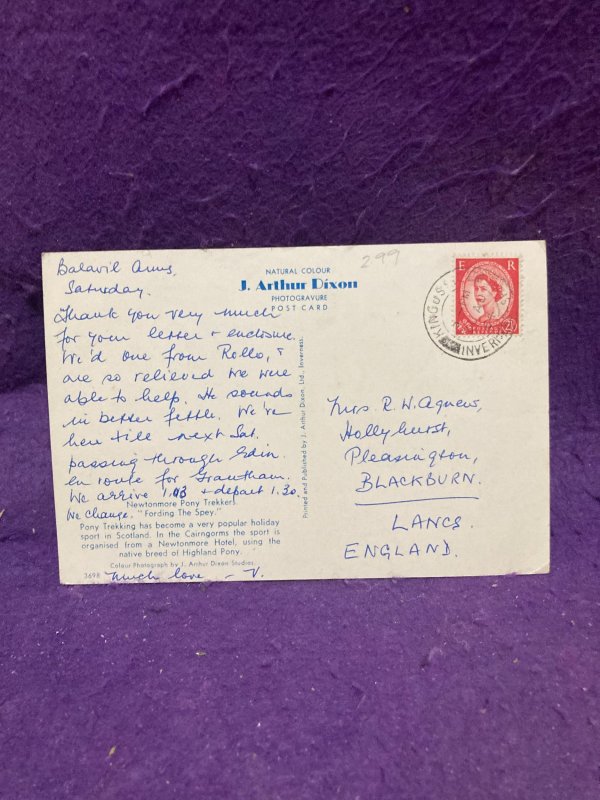 Balavil Arms,
Saturday.
Thank you very much
for your letter & enclosure.
We'd one from Rollo, &
are so relieved we were
able to help. He sounds
in better fettle. We're
here till next Sat.
passing through Edin.
en route for Grantham.
We arrive 1.03 & depart 1.30.
We change.
much love - V.
NATURAL COLOUR
J. Arthur Dixon
PHOTOGRAVURE
POST CARD
2.99
Newtonmore Pony Trekkers
"Fording The Spey."
Pony Trekking has become a very popular holiday
sport in Scotland. In the Cairngorms the sport is
organised from a Newtonmore Hotel, using the
native breed of Highland Pony.
Colour Photograph by J. Arthur Dixon Studios.
3698
Printed and Published by J. Arthur Dixon, Ltd., Inverness.
E R
KINGUS
INVER
Mrs R. W. Agnew,
Hollyhurst,
Pleasington,
BLACKBURN.
LANCS.
ENGLAND.